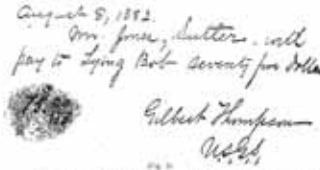 August 8, 1882.
Mr. Jones, Sutler, will
pay to Lying Bob seventy five Dollars
Gilbert Thompson
U.S.G.S.